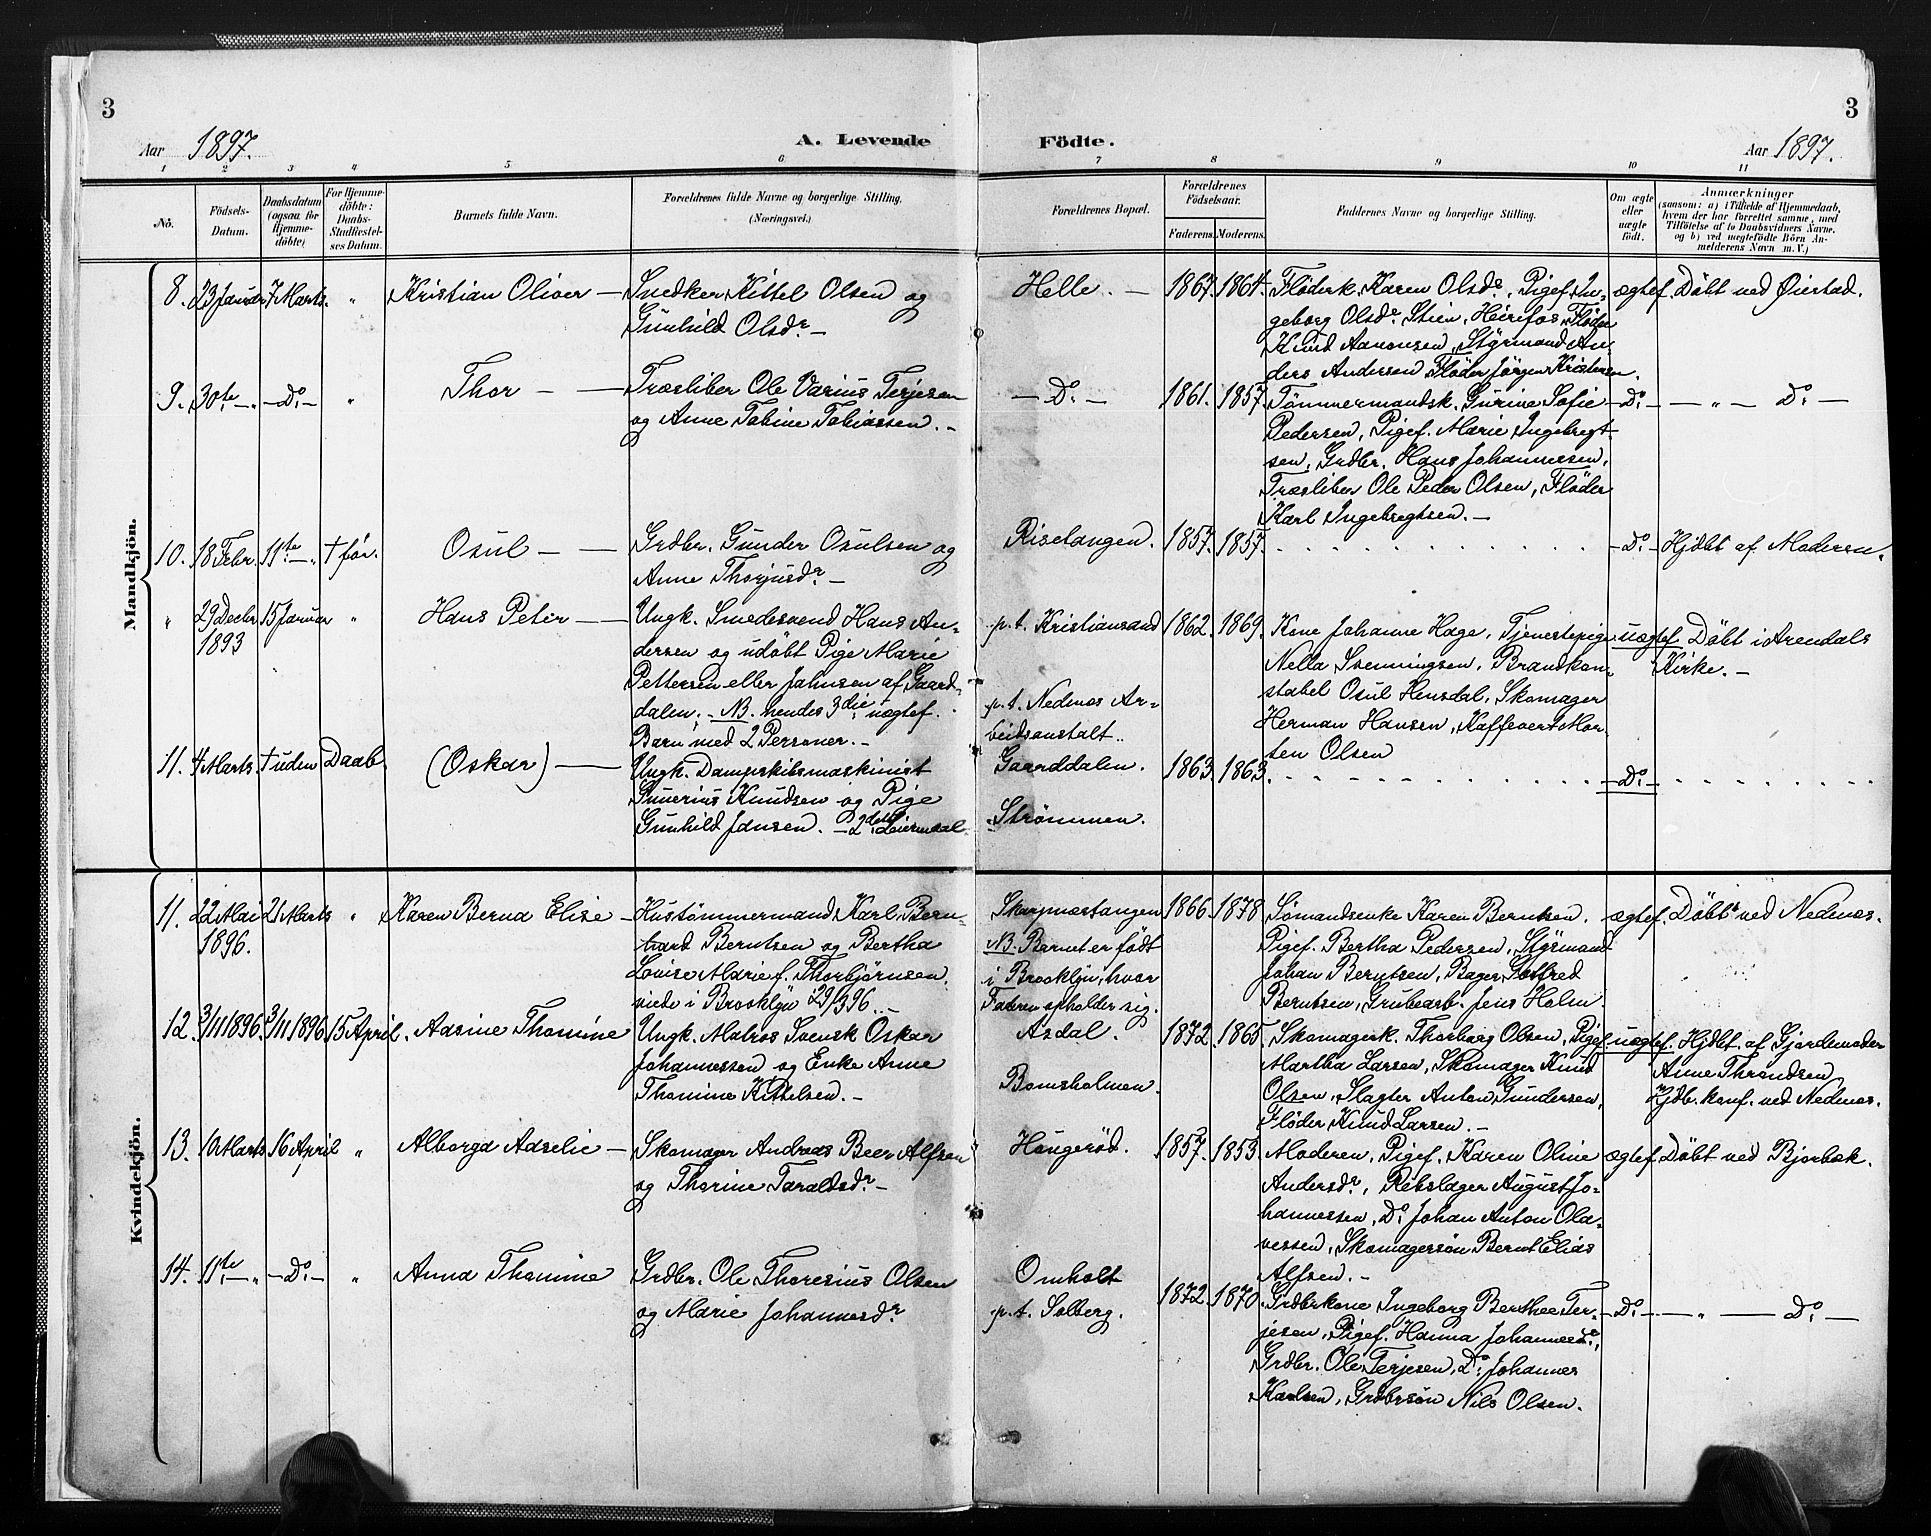 3
3
Aar 1897.
A. Levende
Födte.
Aar 1897.
1 2 3 4 5 6 7 8 9 10 11
No.
Födsels-
Datum.
Daabsdatum
(ogsaa for
Hjemme-
döbte)
For Hjemme-
döbte:
Daabs-
Stadfæstel-
ses Datum.
Barnets fulde Navn.
Forældrenes fulde Navne og borgerlige Stilling.
(Næringsvei.)
Forældrenes Bopæl.
Forældrenes
Födselsaar.
Faderens. Moderens.
Faddernes Navne og borgerlige Stilling.
Om ægte
eller
uægte
födt.
Anmærkninger
(saasom: a) i Tilfælde af Hjemmedaab,
hvem der har forrettet samme, med
Tilföielse af to Daabsvidners Navne.
og b) ved uægtefödte Börn An-
melderens Navn m. V.)
Mandkjön.
8. 23 Januar 7 Marts. " Kristian Oliver —
Snedker Kittel Olsen og
Gunhild Olsdr. —
Helle. — 1867. 1864.
Fløderk. Karen Olsdr, Pigef. In-
geborg Olsdr. Stien, Heirefos, Fløder
Knud Aanonsen, Styrmand An-
ders Andersen Fløder Jørgen Kristensen.
ægtef. Døbt ved Øiestad.
9. 30te — " — Do. — " Thor — —
Træsliber Ole Varius Terjesen
og Anne Tobine Tobiassen. —
— Do. — 1861. 1857.
Tømmermandsk. Gurine Sofie
Pedersen, Pigef. Marie Ingebregt-
sen, Grdbr. Hans Johannessen,
Træsliber Ole Peder Olsen, Fløder
Karl Ingebregtsen. —
— Do — — " — Do. —
10. 18 Febr. 11te — " † før. Osul — —
Grdbr. Gunder Osulsen og
Anne Thorjusdr. —
Risetangen. 1857. 1857.
— Do. — Hjdbt af Moderen.
" 29 Decbr
1893
15 Januar " Hans Peter — —
Ungk. Smedesvend Hans An-
dersen og udøbt Pige Marie
Pettersen eller Jahnsen af Gaard-
dalen. — NB. hendes 3die uægtef.
Barn med 2 Personer. —
p. t. Kristianssand
p. t. Nedenes Ar-
beidsanstalt..
1862. 1869.
Kone Johanne Hage, Tjenestepige
Nella Svenningsen, Brandkon-
stabel Osul Hensdal, Skomager
Herman Hansen, Kaffevert Mor-
ten Olsen
uægtef. Døbt i Arendals
Kirke. —
11. 4 Marts. † uden Daab. (Oskar) —
Ungk. Dampskibsmaskinist
Knudsen og Pige
Gunhild Jansen. — 2det Leiermaal
Gaarddalen.
Strømmen.
1863. 1863.
— Do. —
Kvindekjön.
11. 22 Mai
1896.
21 Marts " Karen Bernd Elise —
Hustømmermand Karl Bern-
hard Berntsen og Bertha
Louise Marie f. Thorbjørnsen.
viede i Brooklyn 29/3 96.
Skarpnæstangen
NB. Barnet er født
i Brooklyn, hvor
Faderen opholder sig.
1866. 1878
Sømandsenke Karen Berntsen.
Pigef. Bertha Pedersen, Styrmand
Johan Berntsen, Bager Gotfred
Berntsen, Grubearb. Jens Holm.
ægtef. Døbt ved Nedenes.
12. 3/11 1896. 3/11 1896. 15 April. Adsine Thomine
Ungk. Matros Svensk Oskar
Johannessen og Enke Anne
Thomine Kittelsen. —
Asdal.
Bomsholmen.
1872. 1865.
Skomagerk. Thorborg Olsen, Pigef.
Martha Larsen, Skomager Knud
Olsen, Slagter Anton Gundersen,
Fløder Knud Larsen. —
uægtef. Hjdbt. af Gjordemoder
Anne Throndsen
Hjdb. konf. ved Nedenes.
13. 10 Marts 16 April " Alborgd Adselie —
Skomager Andreas Beer Alfsen
og Thorine Taraldsdr. —
Haugerød. 1857. 1853
Moderen, Pigef. Karen Oline
Andersdr, Rebslager August Jo-
hannessen, Do. Johan Anton Ola-
vessen, Skomagersøn Bernt Elias
Alfsen. —
ægtef. Døbt ved Bjorbæk.
14. 11te — " — Do. — " Anna Thomine
Grdbr. Ole Thoresius Olsen
og Marie Johannesdr.
Omholt
p. t. Solberg.
1872. 1870.
Grdbrkone Ingeborg Berthee Ter-
jesen, Pigef. Hanna Johannesdr,
Grdbr. Ole Terjesen, Do. Johannes
Karlsen, Grdbrsøn Nils Olsen.
— Do. — — " — Do. —